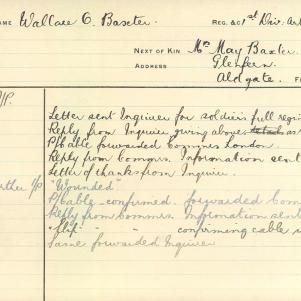 NAME Wallace C. Baxter REG. & C/- 1st Div. Art
NEXT OF KIN Mrs May Baxter
ADDRESS Glenfern
Aldgate.
Letter sent Inquirer for soldier's full regi
Reply from Inquirer giving above as
P/Cable forwarded Commrs London.
Reply from Comrs. Information sent
Letter of thanks from Inquirer.
"Wounded"
P/Cable - confirmed. forwarded Com
Reply from Commrs. Information sent
"Slip" " " confirming cable
Same forwarded Inquirer